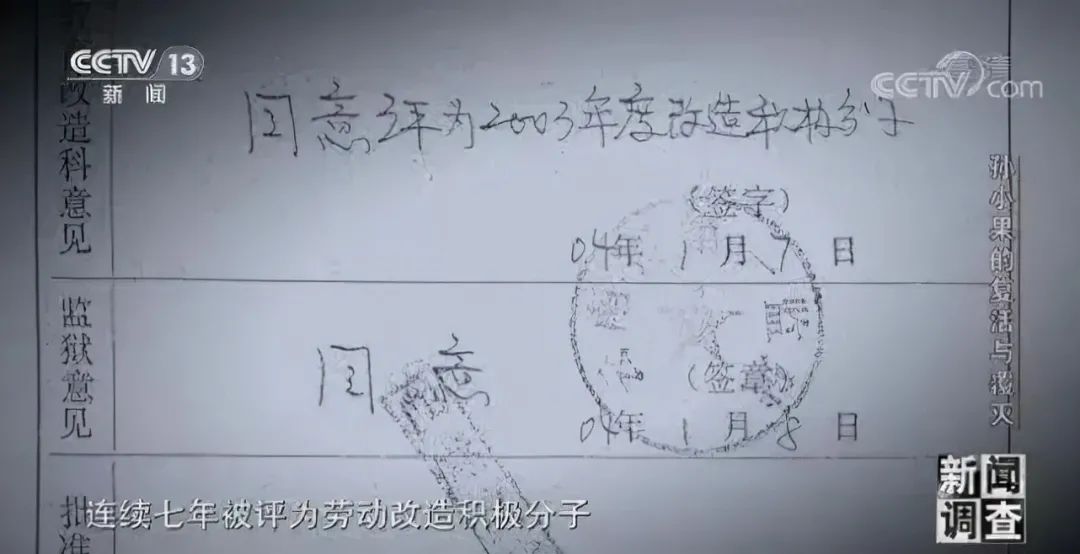 CCTV 13
新闻
CCTV com
改造科意见
同意 为2003年度改造积极分子
(签字)
04年 1月 7日
监狱意见
同意
(签章)
04年 1月 8日
批准
连续七年被评为劳动改造积极分子
孙小果的复活与覆灭
新闻
调查